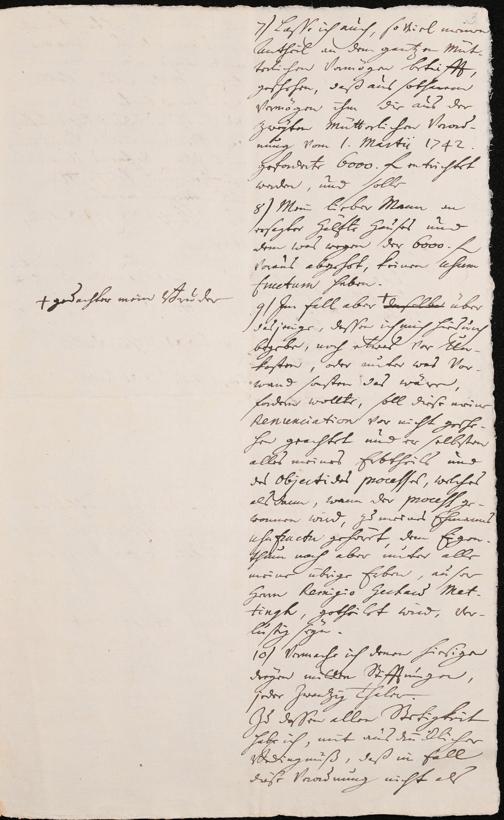 7) Lasse ich auch, so viel meinen
Antheil an dem gantzen Müt-
terlichen Vermögen betrifft,
geschehen, daß aus sothanem
Vermögen ihm die aus der
zweyten Mütterlichen Verord-
nung vom 1. Martii 1742.
geforderte 6000. f. entrichtet
werden, und solle
8) Mein lieber Mann an
besagter Hälfte Hauses und
dem was wegen der 6000. f.
voraus abgehet, keinen usum
fructum haben.
9) Im fall aber + derselbe über
+ gedachter mein Bruder
dasjenige, dessen ich mich hierdurch
begebe, noch etwas vor Un-
kosten, oder unter was Vor-
wand sonsten das wäre,
fordern wollte, soll diese meine
Renunciation vor nicht gesche-
hen geachtet und er selbsten
alles meines Erbtheils und
des Objecti des processes, welches
alsdann, wann der process ge-
wonnen wird, zu meines Ehemanns
usufructu gehöret, dem Eigen-
thum nach aber unter alle
meine übrige Erben, ausser
Herrn Remigio Gustavo Met-
tingh, getheilet wird, ver-
lustig seyn.
10) Vermache ich denen hiesigen
dreyen milden Stifftungen,
jeder Zwantzig Thaler.
Zu dessen allen Stetigkeit
habe ich, mit ausdrücklicher
Bedingnüß, daß in fall
diese Verordnung nicht als